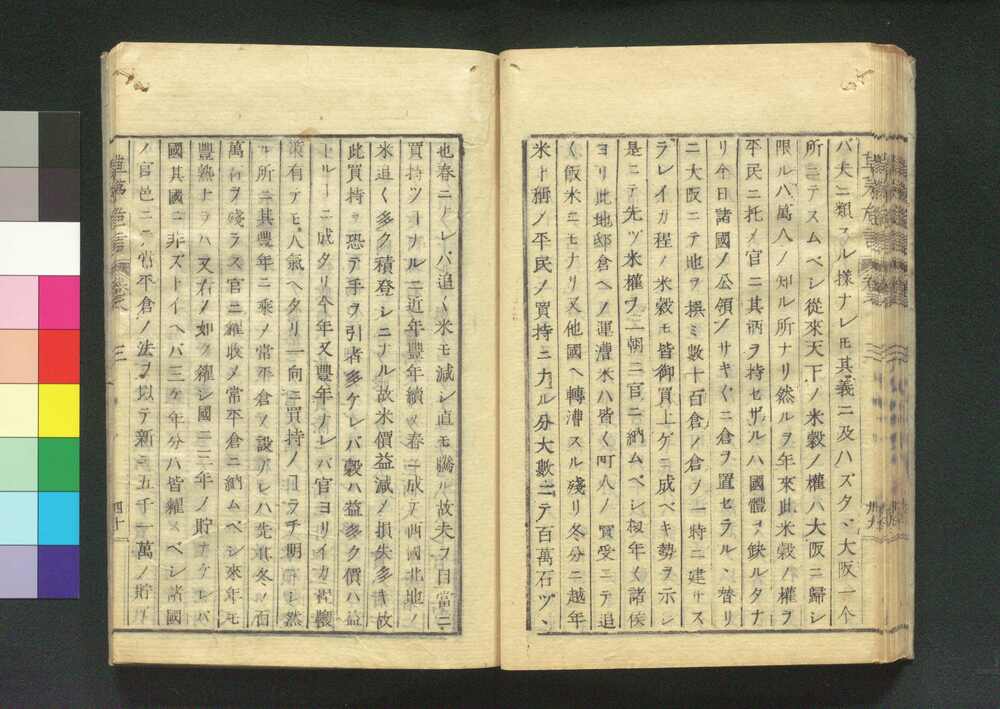 バ夫ニ類スル様ナレ𪜈其義ニ及ハズタヾ大阪一个
所ニテスムベシ從來天下ノ米穀ノ權ハ大阪ニ歸シ
限ルハ萬人ノ知ル所ナリ然ルヲ年來此米穀ノ權ヲ
平民ニ托メ官ニ其柄ヲ持セザルハ國體ヲ缺ルタナ
リ今日諸國ノ公領ノサキ〱ニ倉ヲ置セラルヽ替リ
ニ大阪ニテ地ヲ撰ミ數十百倉ノ倉ヲ一特ニ建サス
ラレイカ程ノ米穀モ皆御買上ゲニ成ベキ勢ヲ示シ
是ニテ先ツ米權ヲ一朝ニ官ニ納ムベシ扨年〱諸侯
ヨリ此地邸倉ヘノ運漕米ハ皆〱町人ノ買受ニテ追
〱飯米ニモナリ又他國ヘ轉漕スル殘リ冬分ニ越年
米ト稱ノ平民ノ買持ニナル分大數ニテ百萬石ヅヽ
也春ニナレバ追〱米モ減シ直モ騰ル故夫ヲ目當ニ
買持ツコナルニ近年豐年續ヲ春ニ成テ西國北地ノ
米追〱多ク積登シニナル故米價益減ノ損失多キ故
此買持ヲ恐テ手ヲ引者多ケレバ穀ハ益多ク價ハ益
ルーニ成タリ今年又豐年ナレバ官ヨリイカ程
有テモ人氣ヘタリ一向ニ買持ノ目ラチ明
ル所ニ其豐年ニ乘メ常平倉ヲ設アレハ先其冬ノ百
萬石ヲ殘ラス官ニ糴收メ常平倉ニ納ムベシ來年モ
豐熟ナラハ又右ノ如ク糴シ國ニ三年ノ貯ナケレバ
國其國ニ非ズトイヘバ三ケ年分ハ皆糴スベシ諸國
ノ官邑ニモ常平倉ノ法ヲ以テ新ニ五千一萬ノ貯
草茅危言
三
四十